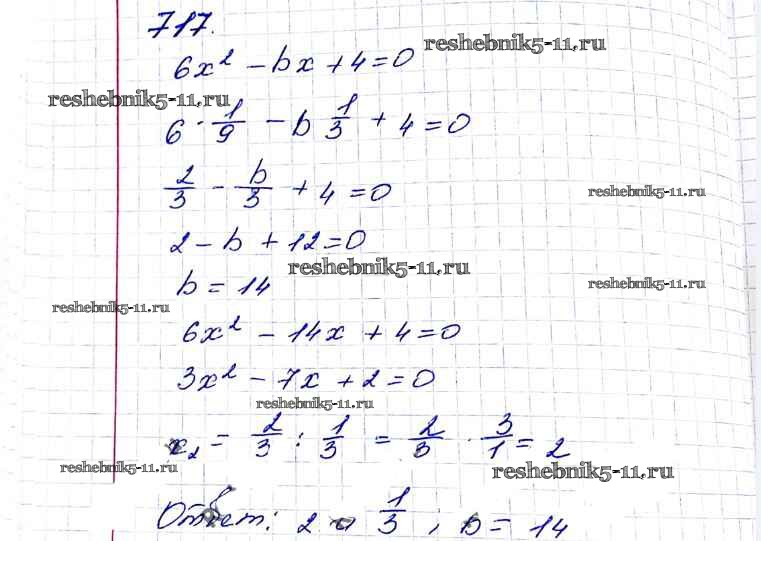 717.
reshebnik5-11.ru
6x² - bx + 4 = 0
reshebnik5-11.ru
6 · 1/9 - b 1/3 + 4 = 0
2/3 - b/3 + 4 = 0
reshebnik5-11.ru
2 - b + 12 = 0
reshebnik5-11.ru
b = 14
reshebnik5-11.ru
reshebnik5-11.ru
6x² - 14x + 4 = 0
3x² - 7x + 2 = 0
reshebnik5-11.ru
x₂ = 2/3 : 1/3 = 2/3 · 3/1 = 2
reshebnik5-11.ru
reshebnik5-11.ru
Ответ: 2 и 1/3 ; b = 14